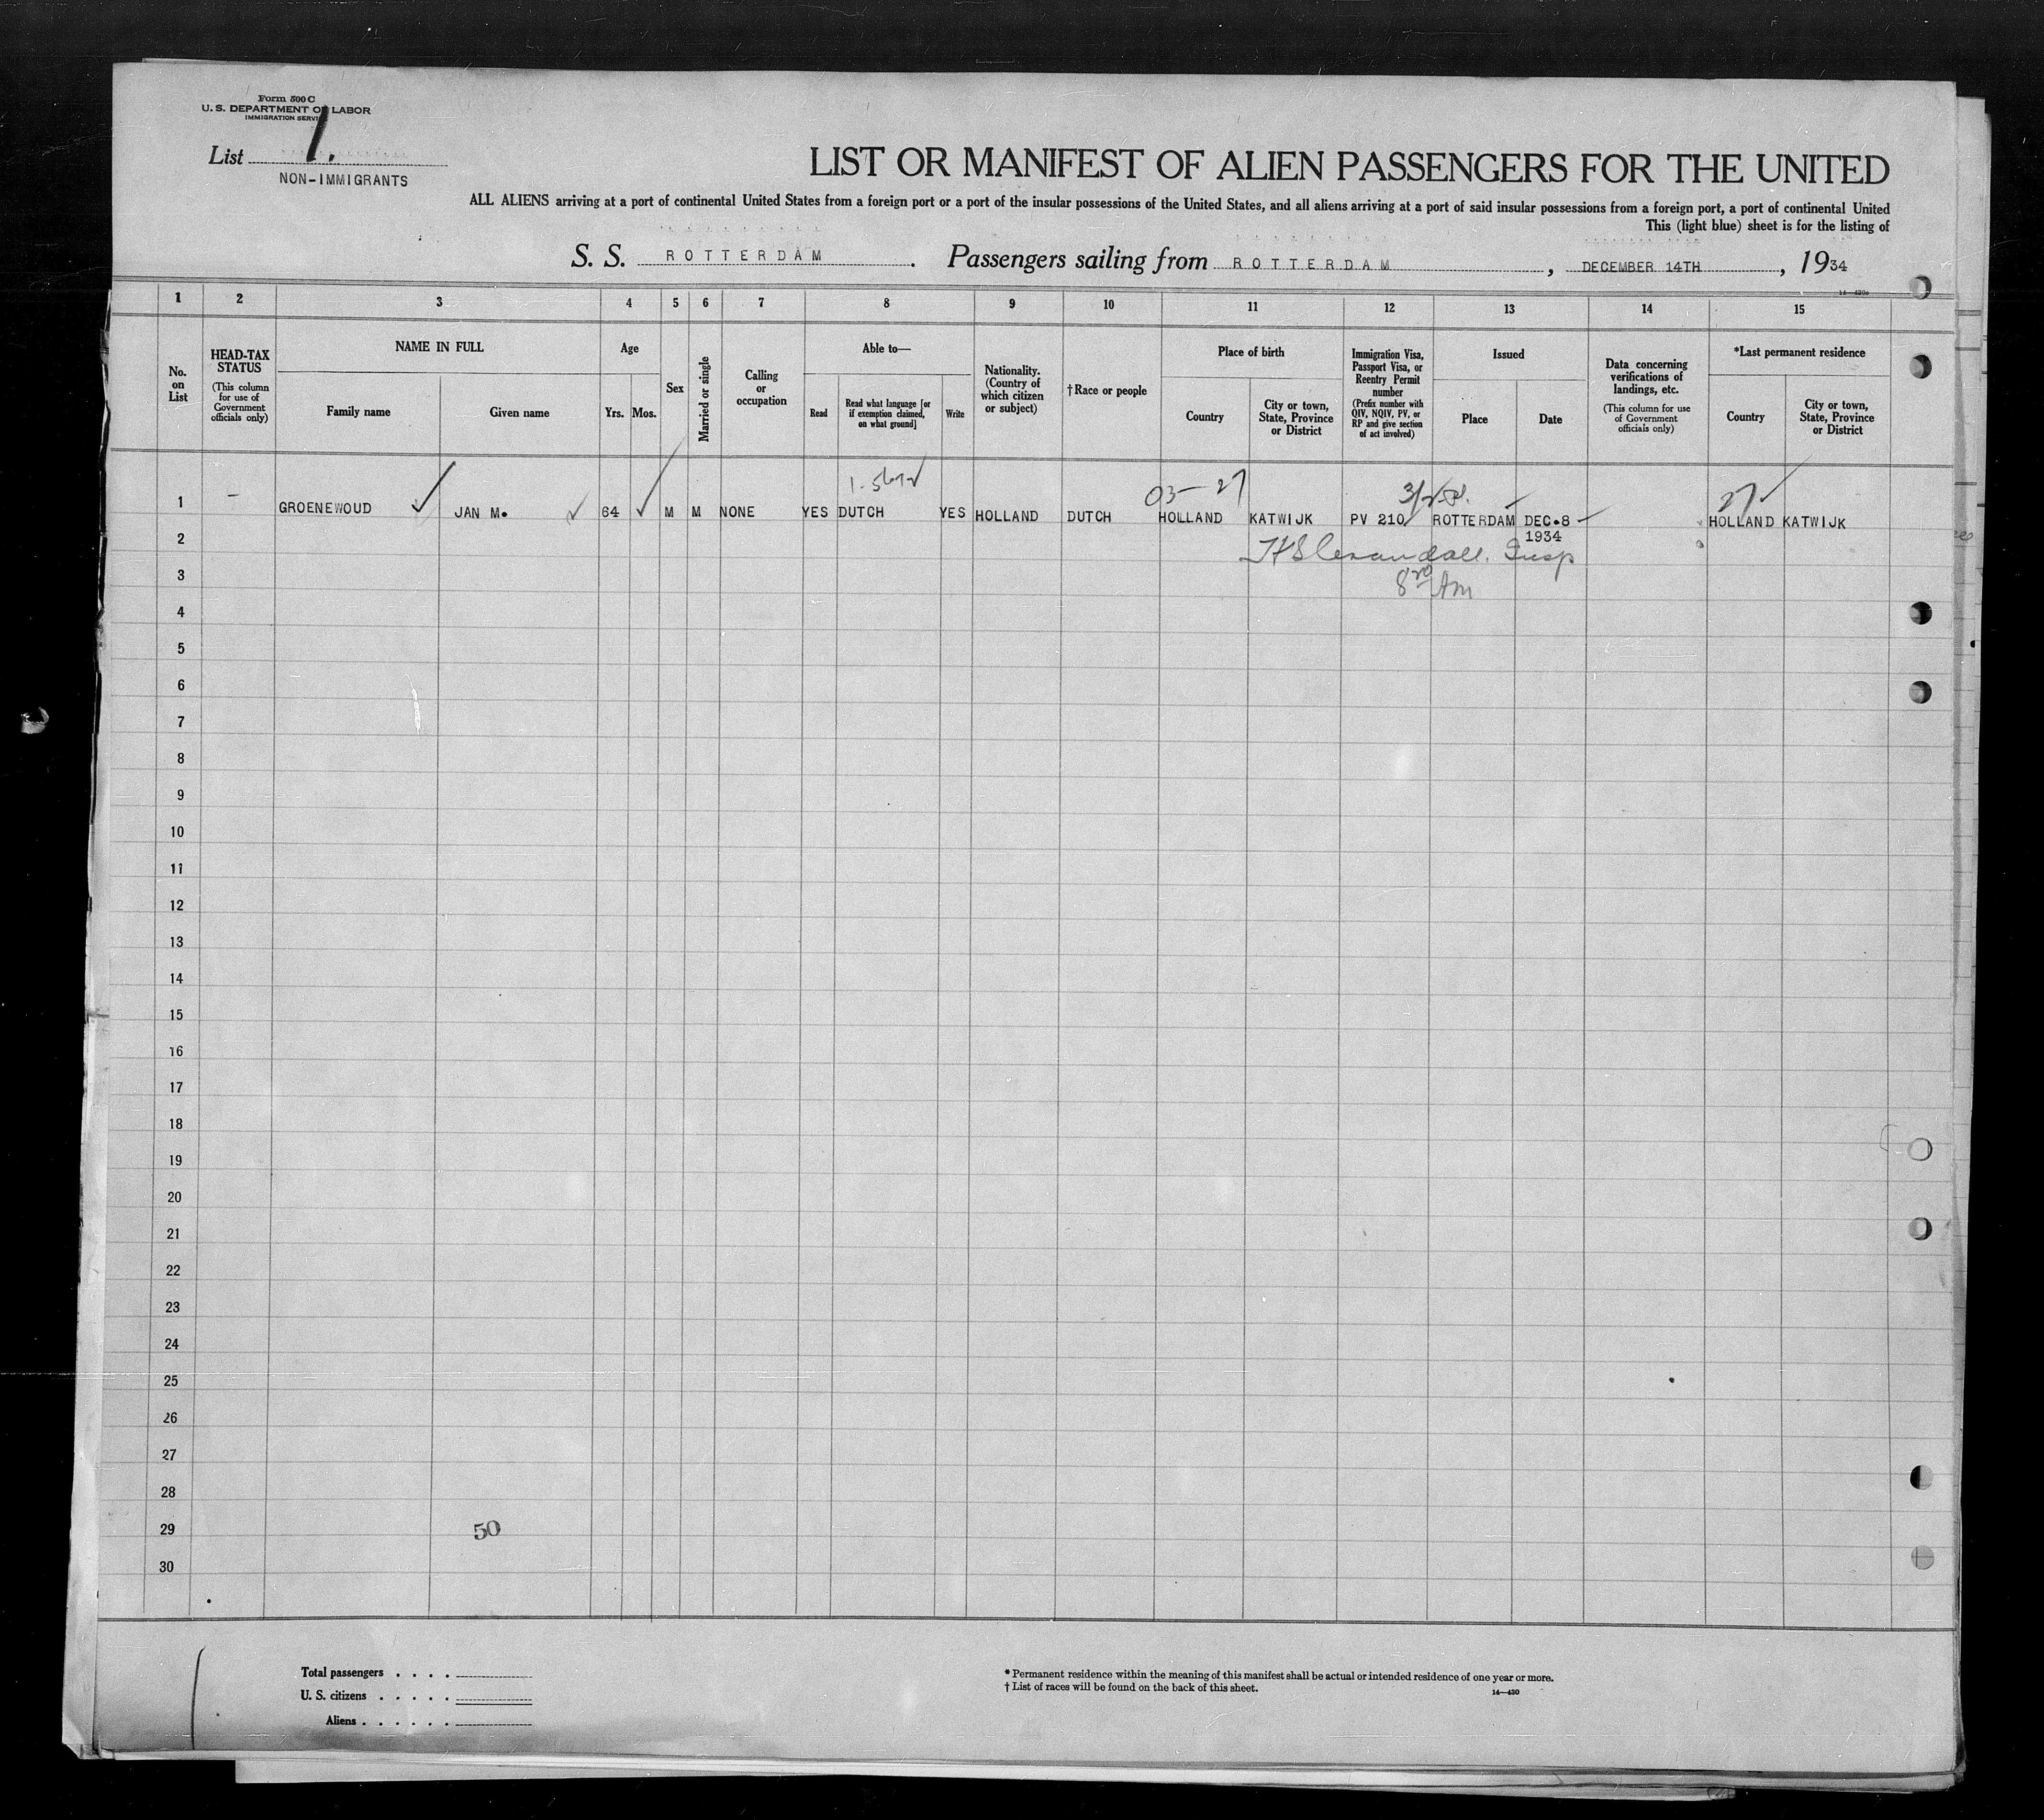 Form 500 C
U. S. DEPARTMENT OF LABOR
IMMIGRATION SERVICE
List 1.
NON-IMMIGRANTS
LIST OR MANIFEST OF ALIEN PASSENGERS FOR THE UNITED
ALL ALIENS arriving at a port of continental United States from a foreign port or a port of the insular possessions of the United States, and all aliens arriving at a port of said insular possessions from a foreign port, a port of continental United
This (light blue) sheet is for the listing of
S. S. ROTTERDAM. Passengers sailing from ROTTERDAM, DECEMBER 14TH, 1934
1 2 3 4 5 6 7 8 9 10 11 12 13 14 15
No. on List
HEAD-TAX STATUS
(This column for use of Government officials only)
NAME IN FULL
Family name
Given name
Age
Yrs.
Mos.
Sex
Married or single
Calling or occupation
Able to—
Read
Read what language [or if exemption claimed, on what ground]
Write
Nationality. (Country of which citizen or subject)
†Race or people
Place of birth
Country
City or town, State, Province or District
Immigration Visa, Passport Visa, or Reentry Permit number
(Prefix number with QIV, NQIV, PV, or RP and give section of act involved)
Issued
Place
Date
Data concerning verifications of landings, etc.
(This column for use of Government officials only)
*Last permanent residence
Country
City or town, State, Province or District
03—27 27
1 – GROENEWOUD JAN M. 64 M M NONE YES DUTCH YES HOLLAND DUTCH HOLLAND KATWIJK PV 210 ROTTERDAM DEC.8 HOLLAND KATWIJK
1934
2
Insp
3
Am
4
5
6
7
8
9
10
11
12
13
14
15
16
17
18
19
20
21
22
23
24
25
26
27
28
29
50
30
Total passengers . . . .
U. S. citizens . . . . .
Aliens . . . . . .
* Permanent residence within the meaning of this manifest shall be actual or intended residence of one year or more.
† List of races will be found on the back of this sheet.
14—430